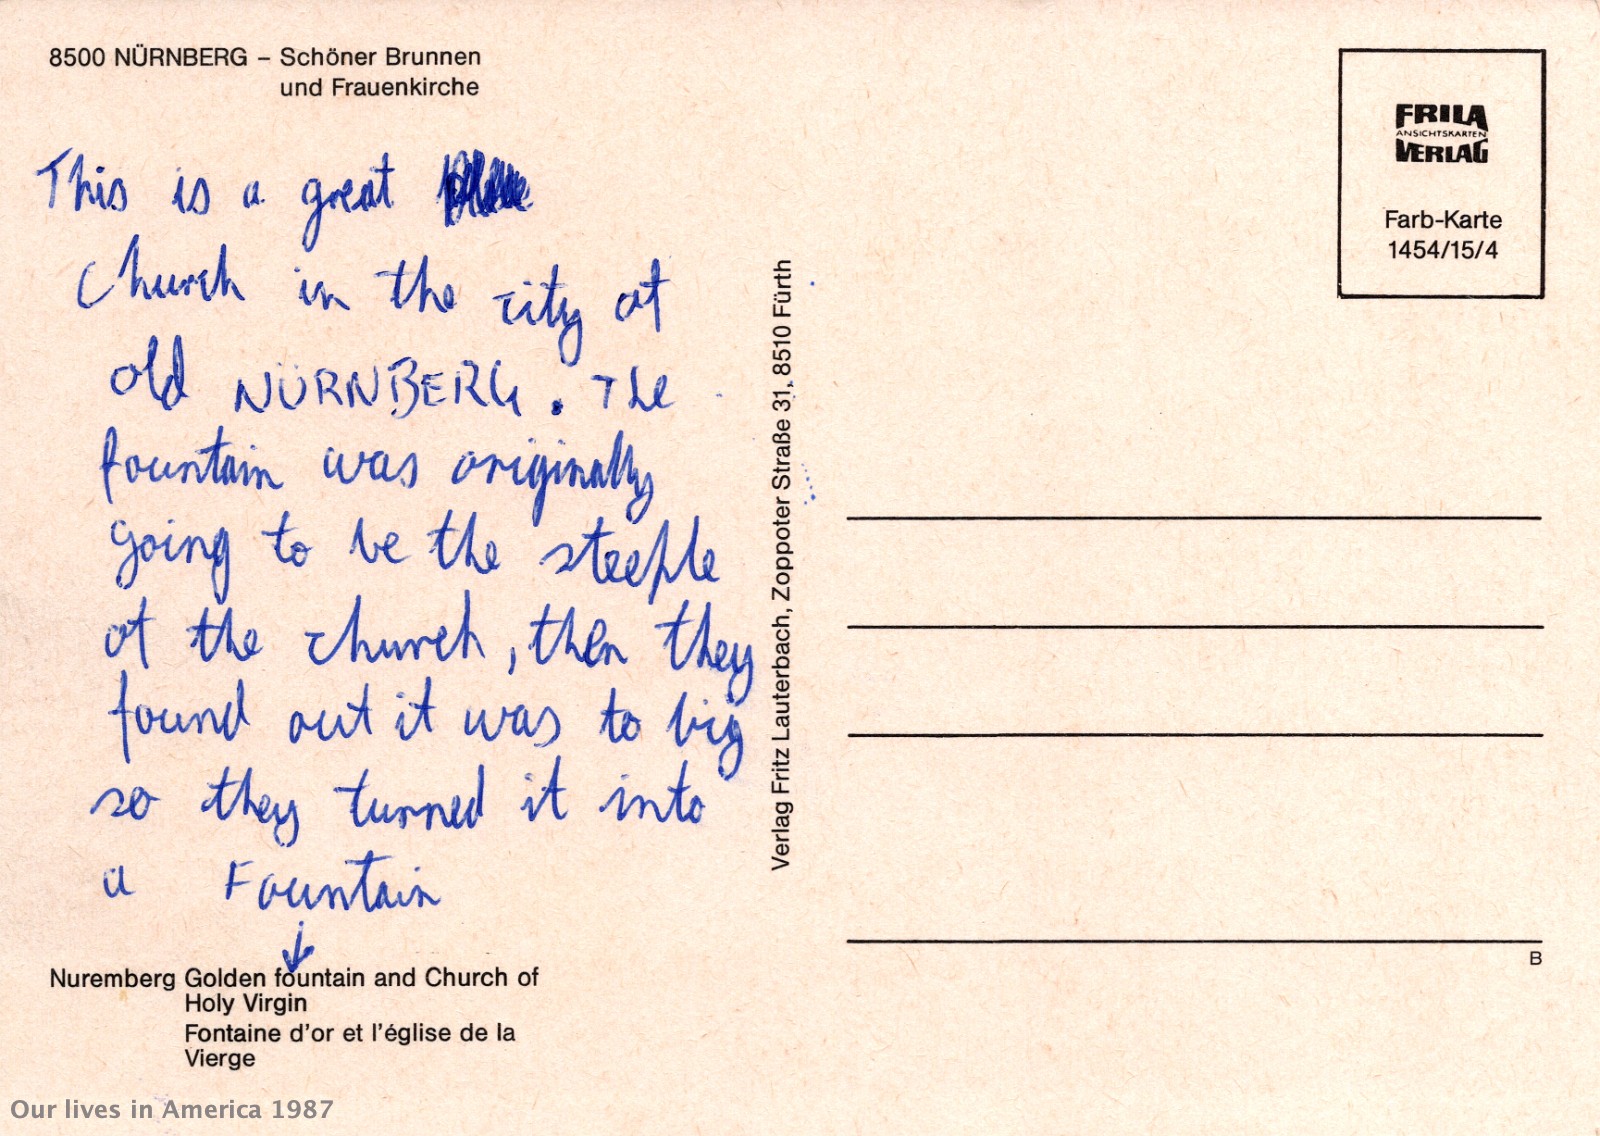 8500 NÜRNBERG – Schöner Brunnen
und Frauenkirche
This is a great
Church in the city of
old NÜRNBERG. The
fountain was originally
going to be the steeple
of the church, then they
found out it was to big
so they turned it into
a Fountain
Nuremberg Golden fountain and Church of
Holy Virgin
Fontaine d'or et l'église de la
Vierge
Verlag Fritz Lauterbach, Zoppoter Straße 31, 8510 Fürth
FRILA
ANSICHTSKARTEN
VERLAG
Farb-Karte
1454/15/4
B
Our lives in America 1987